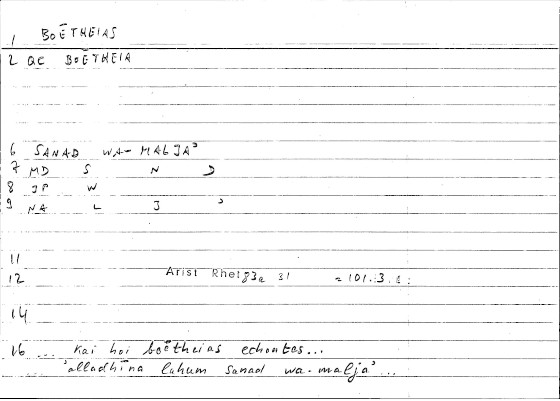 1 BOĒTHEIAS
2 QC BOĒTHEIA
6 SANAD WA-MALJAʾ
7 MD S N
8 JP W
9 NA L J ʾ
11
12 Arist Rhet 83a 31 = 101.3.
14
16 ... kai hoi boētheias echontes...
... ʾalladhīna lahum sanad wa-maljaʾ ...